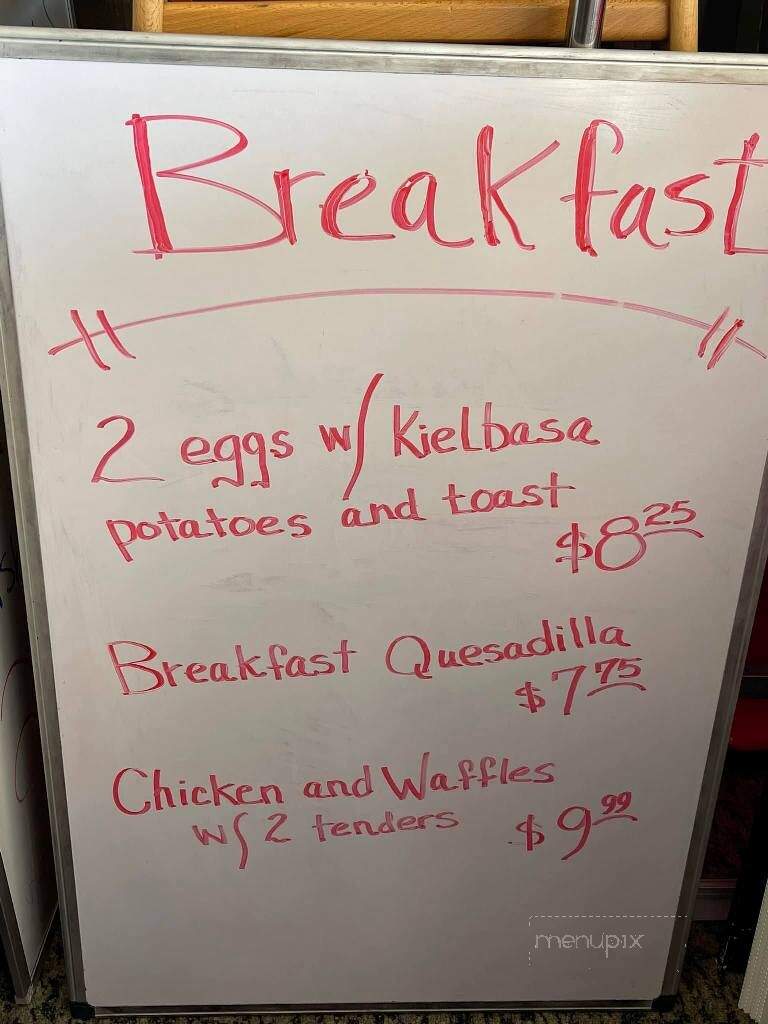 Breakfast
2 eggs w/ Kielbasa
potatoes and toast
$8.25
Breakfast Quesadilla
$7.75
Chicken and Waffles
w/ 2 tenders $9.99
menupix